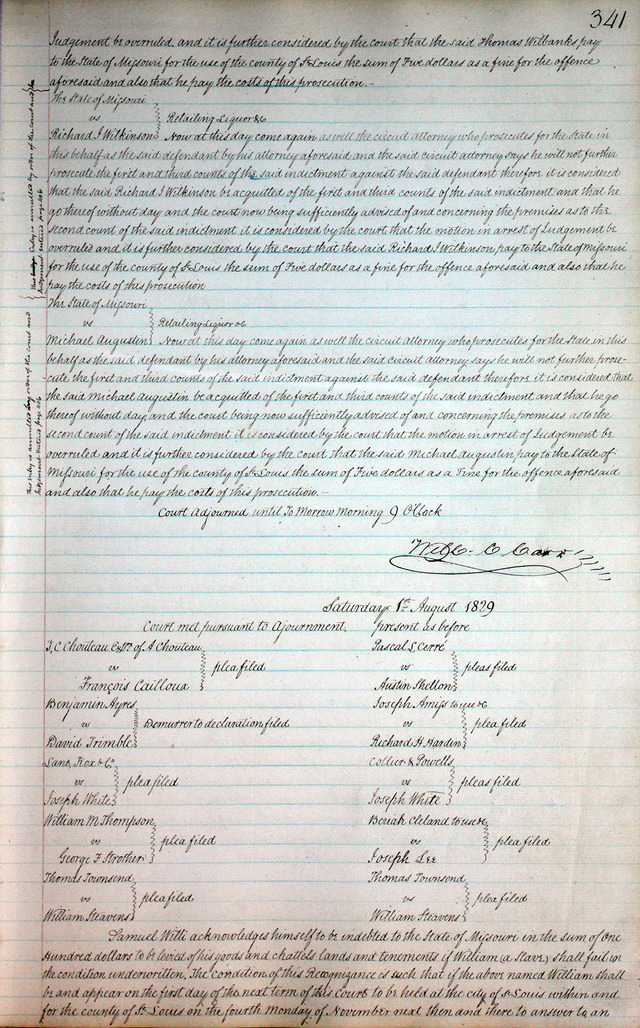 341
Judgement be overruled, and it is further considered by the court that the said Thomas Wilbanks pay
to the State of Missouri for the use of the county of St Louis the sum of Five dollars as a fine for the offence
aforesaid and also that he pay the costs of this prosecution. –
The State of Missouri
vs
Retailing Liquor &c
Richard J Wilkinson Now at this day come again as well the circuit attorney who prosecutes for the State in
this behalf as the said defendant by his attorney aforesaid and the said circuit attorney says he will not further
prosecute the first and third counts of the said indictment against the said defendant therefore it is considered
that the said Richard J Wilkinson be acquitted of the first and third counts of the said indictment and that he
go thereof without day and the court now being sufficiently advised of and concerning the premises as to the
second count of the said indictment it is considered by the court that the motion in arrest of Judgement be
overruled and it is further considered by the court that the said Richard J Wilkinson, pay to the State of Missouri
for the use of the county of St Louis the sum of Five dollars as a fine for the offence aforesaid and also that he
pay the costs of this prosecution
The State of Missouri
vs
Retailing Liquor &c
Michael Augustin Now at this day come again as well the circuit Attorney who prosecutes for the State in this
behalf as the said defendant by his attorney aforesaid and the said circuit attorney says he will not further prose-
cute the first and third counts of the said indictment against the said defendant therefore it is considered that
the said Michael Augustin be acquitted of the first and third counts of the said indictment and that he go
thereof without day, and the court being now sufficiently advised of and concerning the premises as to the
second count of the said indictment it is considered by the court that the motion in arrest of Judgement be
overruled and it is further considered by the court that the said Michael Augustin pay to the State of
Missouri for the use of the county of St Louis the sum of Five dollars as a Fine for the offence aforesaid
and also that he pay the costs of this prosecution. –
Court Adjourned until To Morrow Morning 9 O'Clock
Will. C Carr
Saturday 1st August 1829
Court met pursuant to Ajournment, present as before
F. C Chouteau of A Chouteau
vs
plea filed
François Cailloux
Pascal L Cerré
vs
pleas filed
Austin Shelton
Benjamin Ayres
vs
Demurrer to declaration filed
David Trimble
Joseph Amiss to use &c
vs
plea filed
Richard H Hardin
Lane, Knox & Co
vs
plea filed
Joseph White
Collier & Powells
vs
pleas filed
Joseph White
William M Thompson
vs
plea filed
George F Strother
Beriah Cleland to use &c
vs
plea filed
Joseph Lee
Thomas Townsend
vs
plea filed
William Steavens
Thomas Townsend
vs
plea filed
William Steavens
Samuel Willi acknowledges himself to be indebted to the State of Missouri in the sum of One
Hundred dollars to be levied of his goods and chattels lands and tenements if William (a Slave) shall fail in
the condition underwritten, The condition of this Recognizance is such that if the above named William shall
be and appear on the first day of the next term of this Court to be held at the city of St Louis within and
for the county of St Louis on the fourth Monday of November next then and there to answer to an